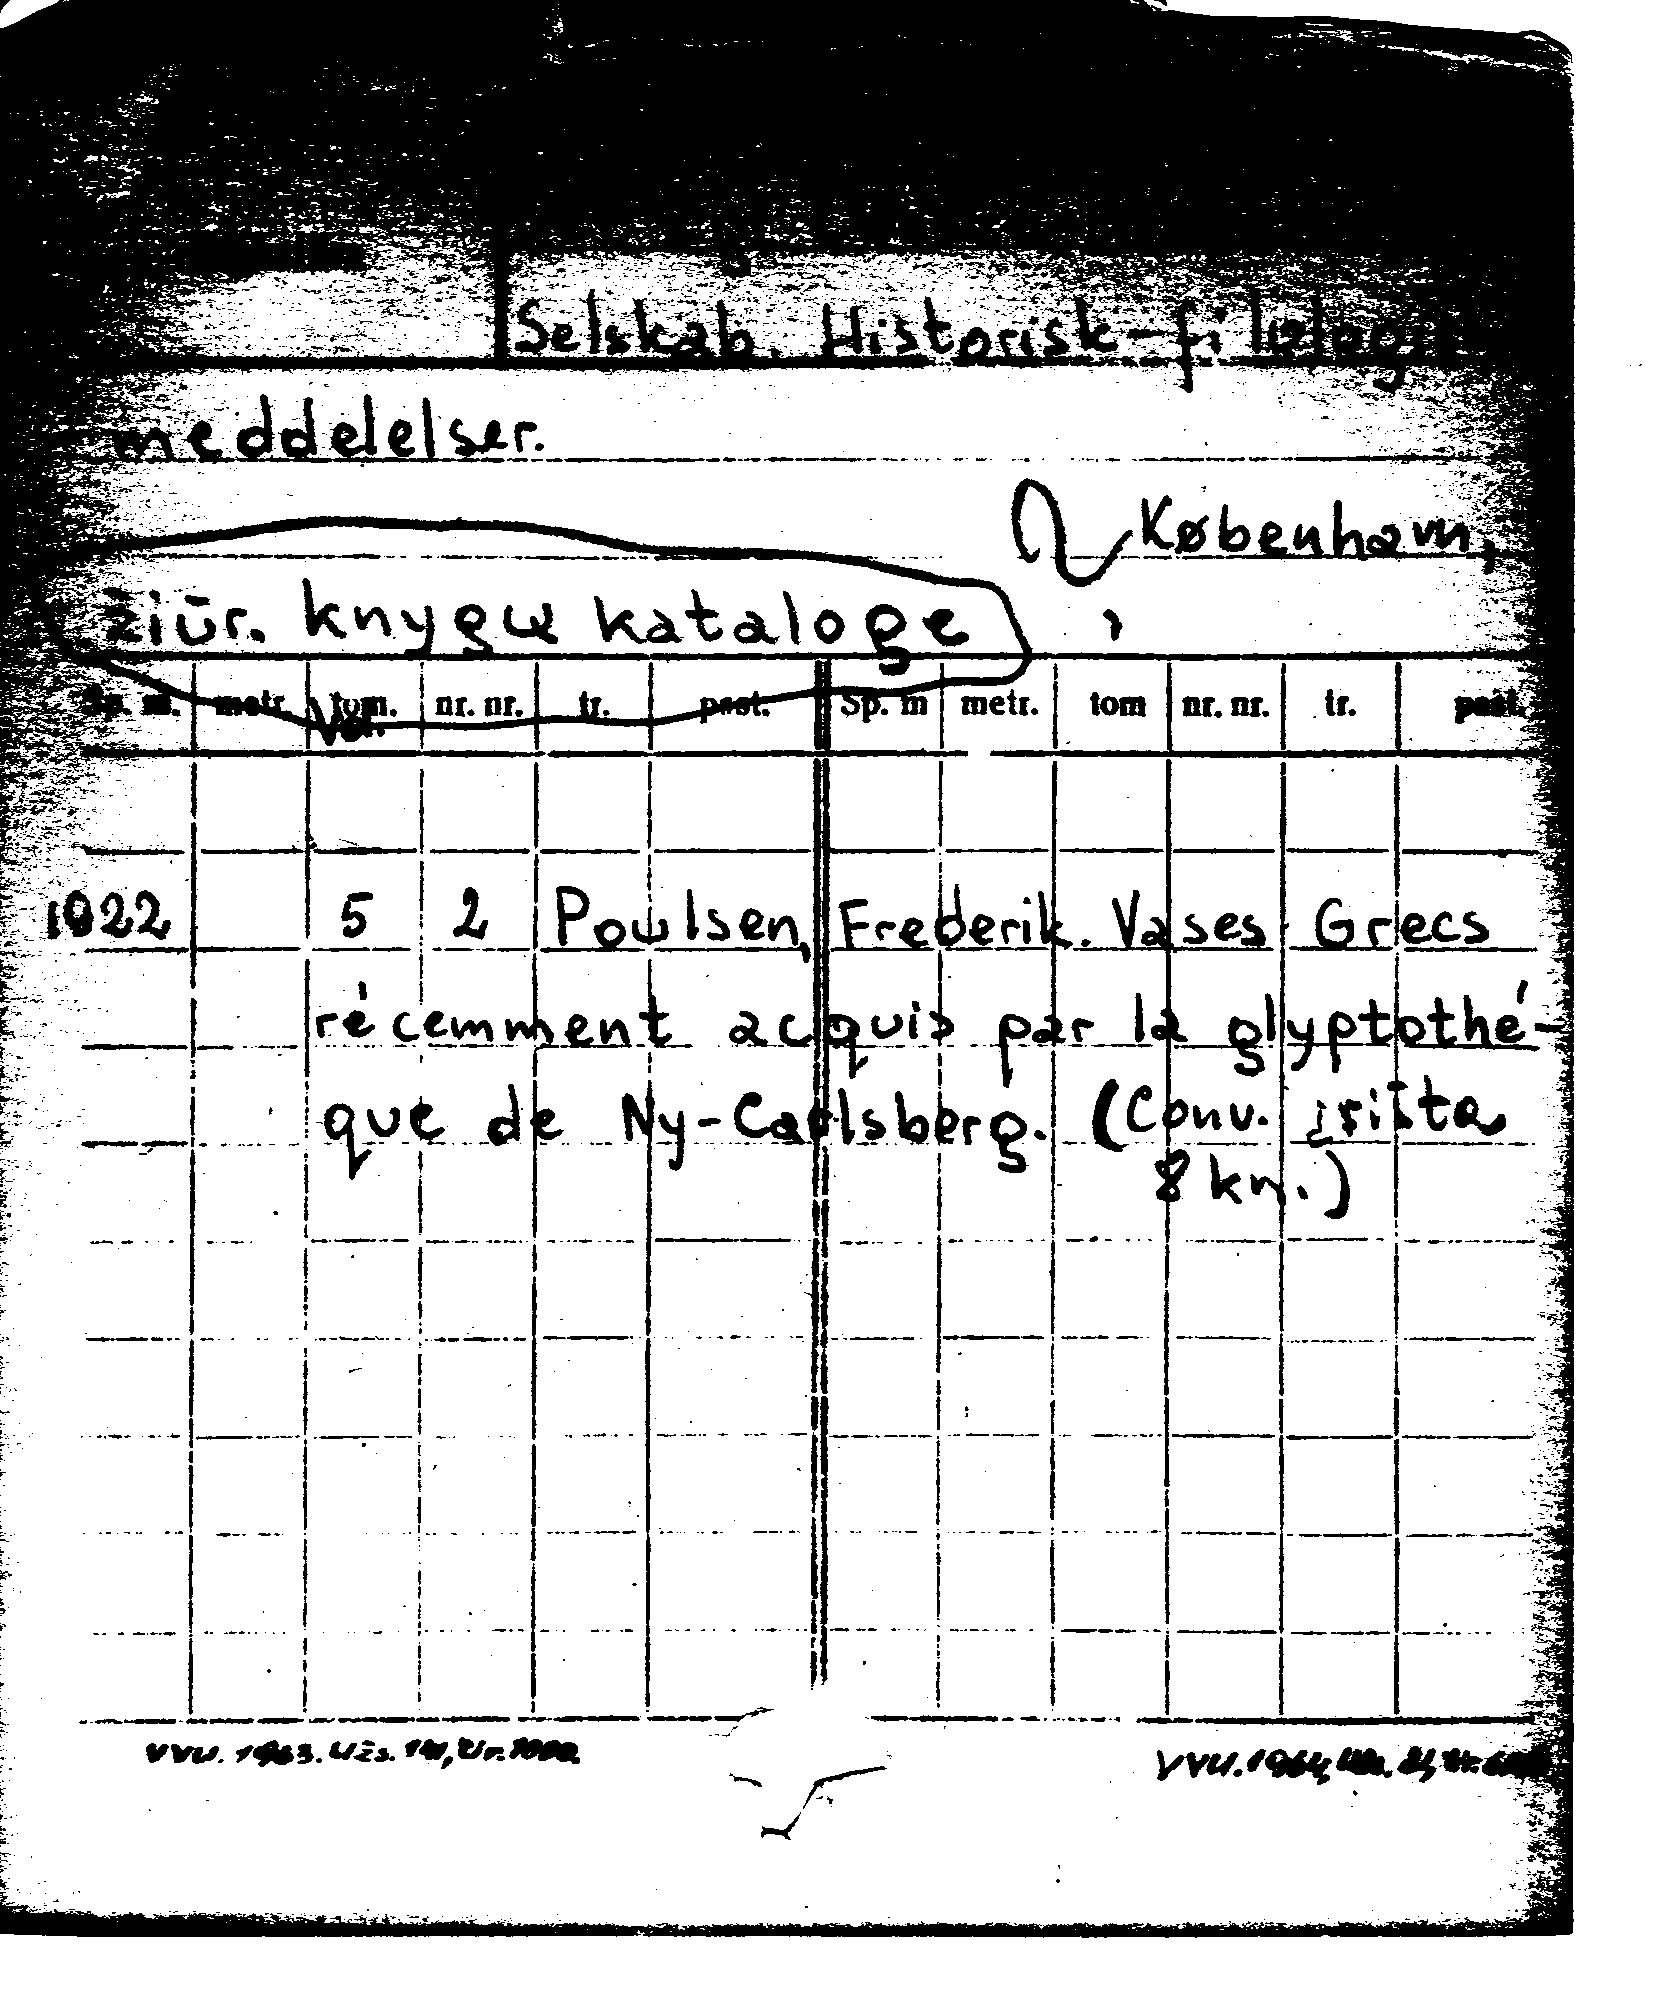 Selskab. Historisk-filologisk
meddelelser.
København,
žiūr. knygų kataloge
Sp. m. metr. tom. nr. nr. tr. past. Sp. m metr. tom nr. nr. tr. past.
Vol.
1922 5 2 Poulsen, Frederik. Vases Grecs
récemment acquis par la glyptothé-
que de Ny-Carlsberg. (Conv. įrišta
8 kn.)
VVU. 1963. Užs.
VVU. 1964,